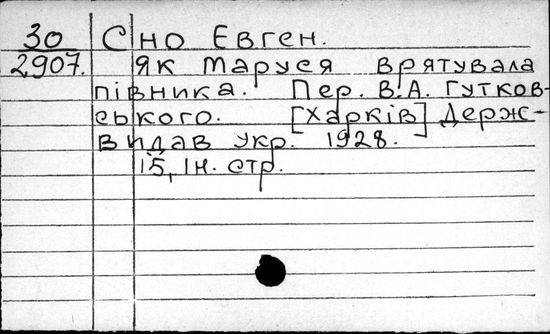 30 Сно Евген.
2907. Як Маруся врятувала
півника. Пер. В.А. Гутков-
ського. [Харків] Держ-
видав Укр. 1928.
15, Iн. стр.